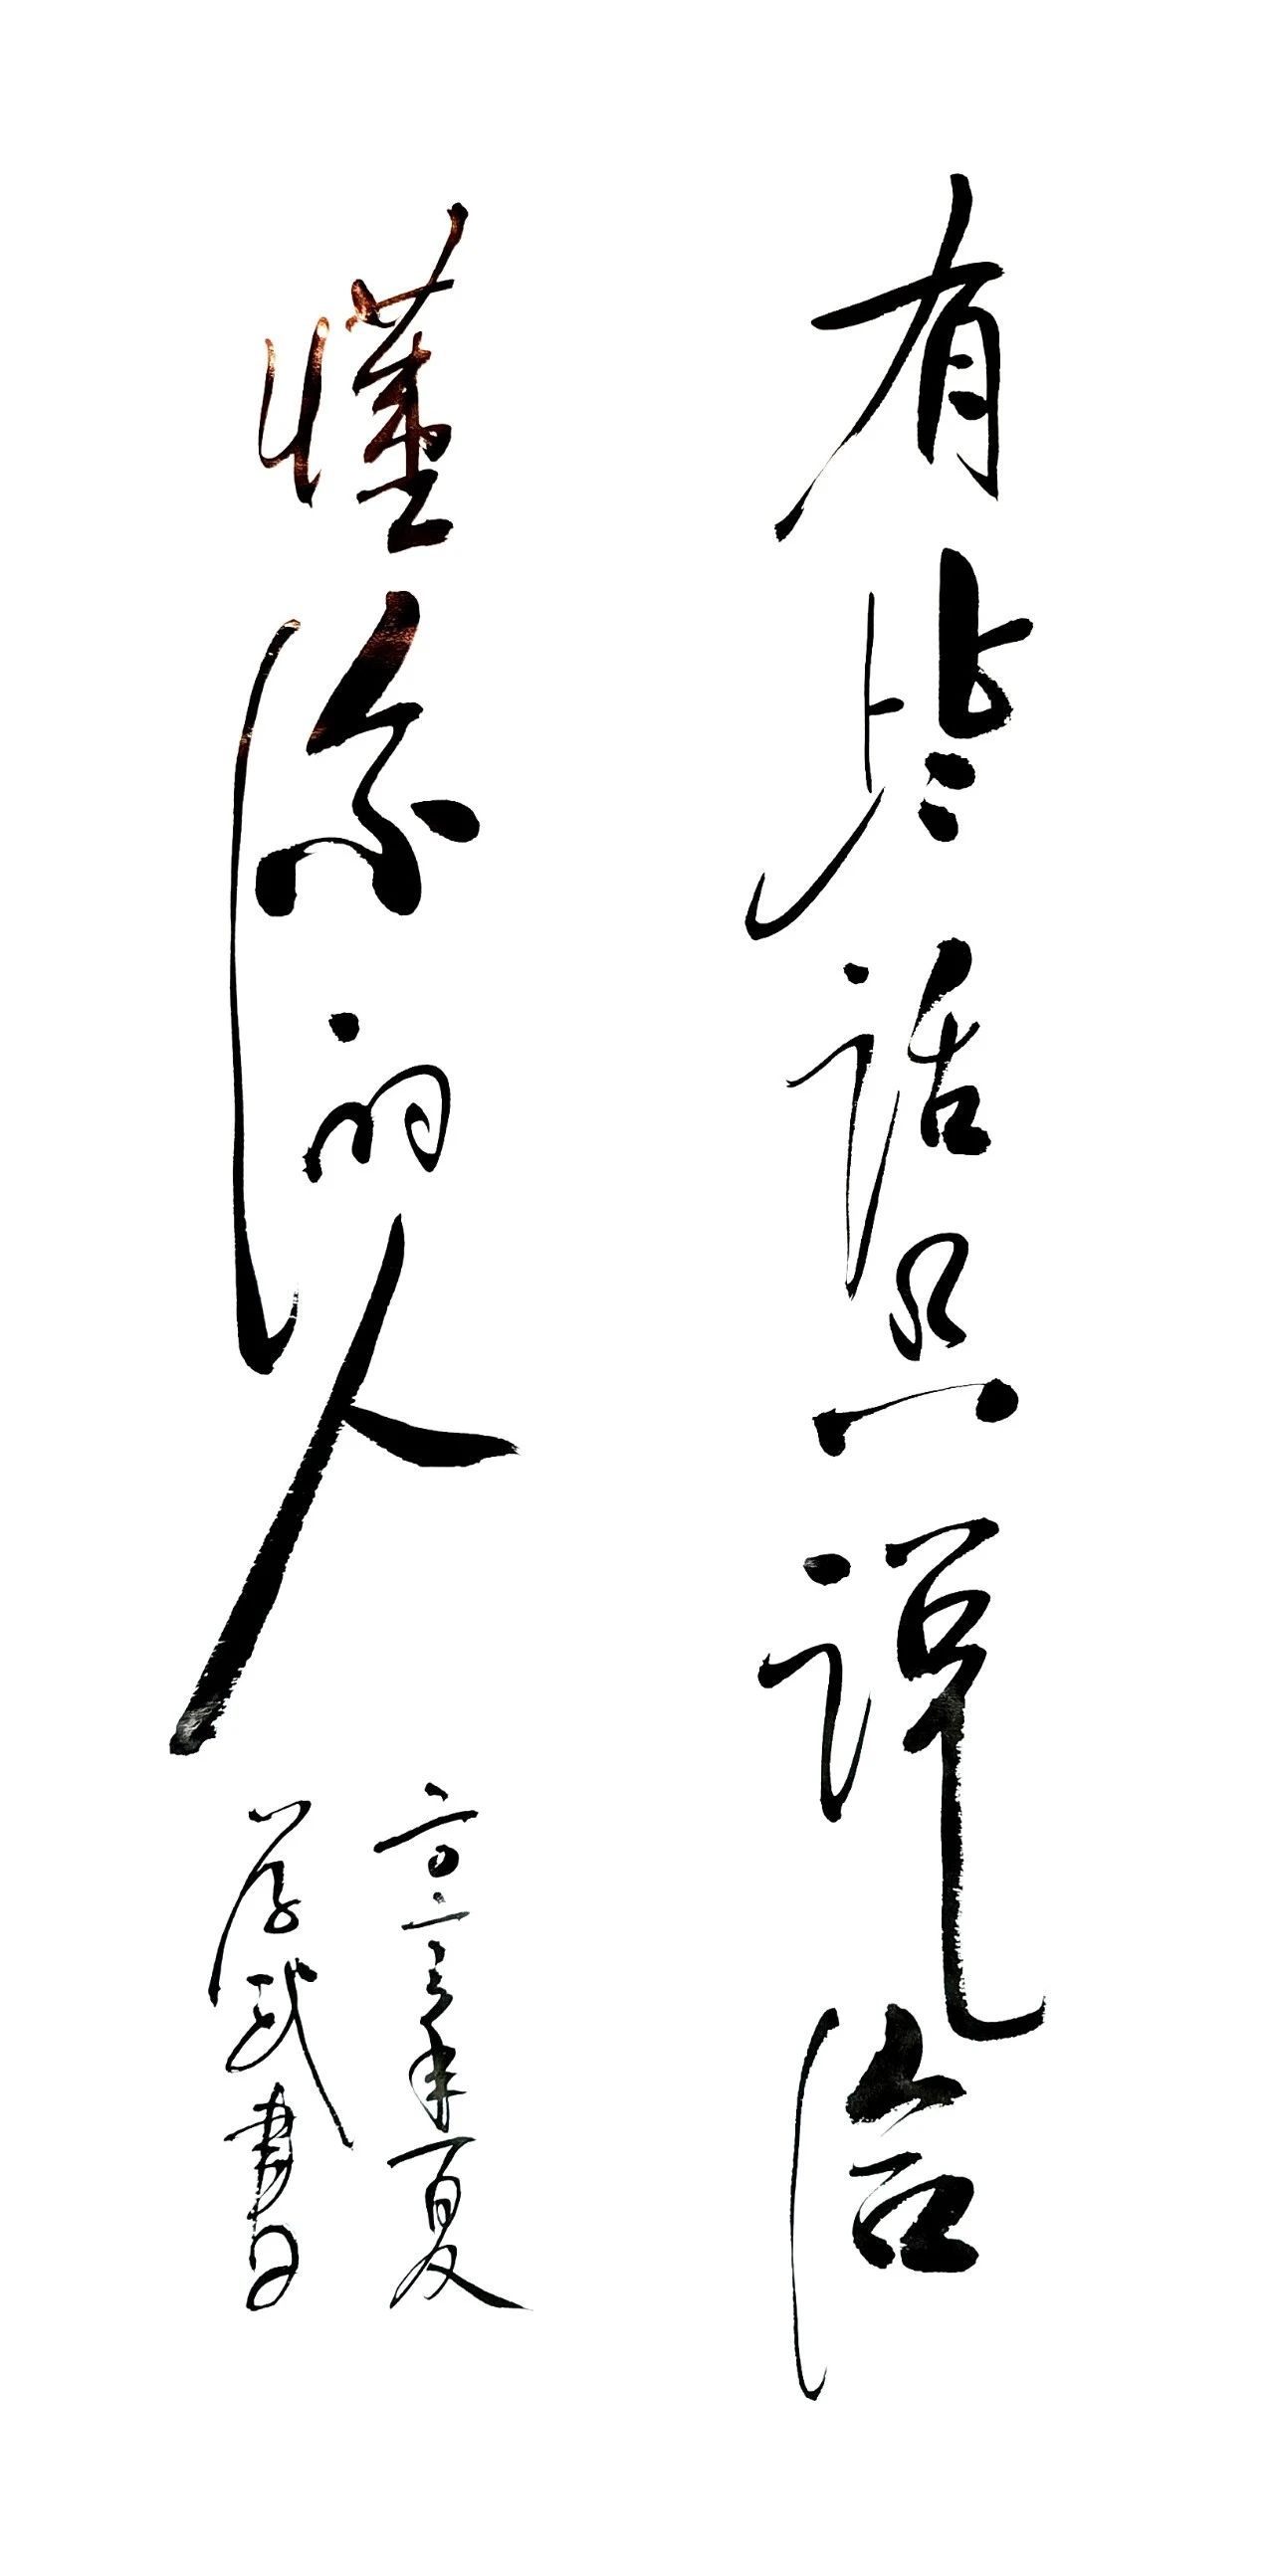 有些话只说给
懂你的人
二〇二三年夏
学武书